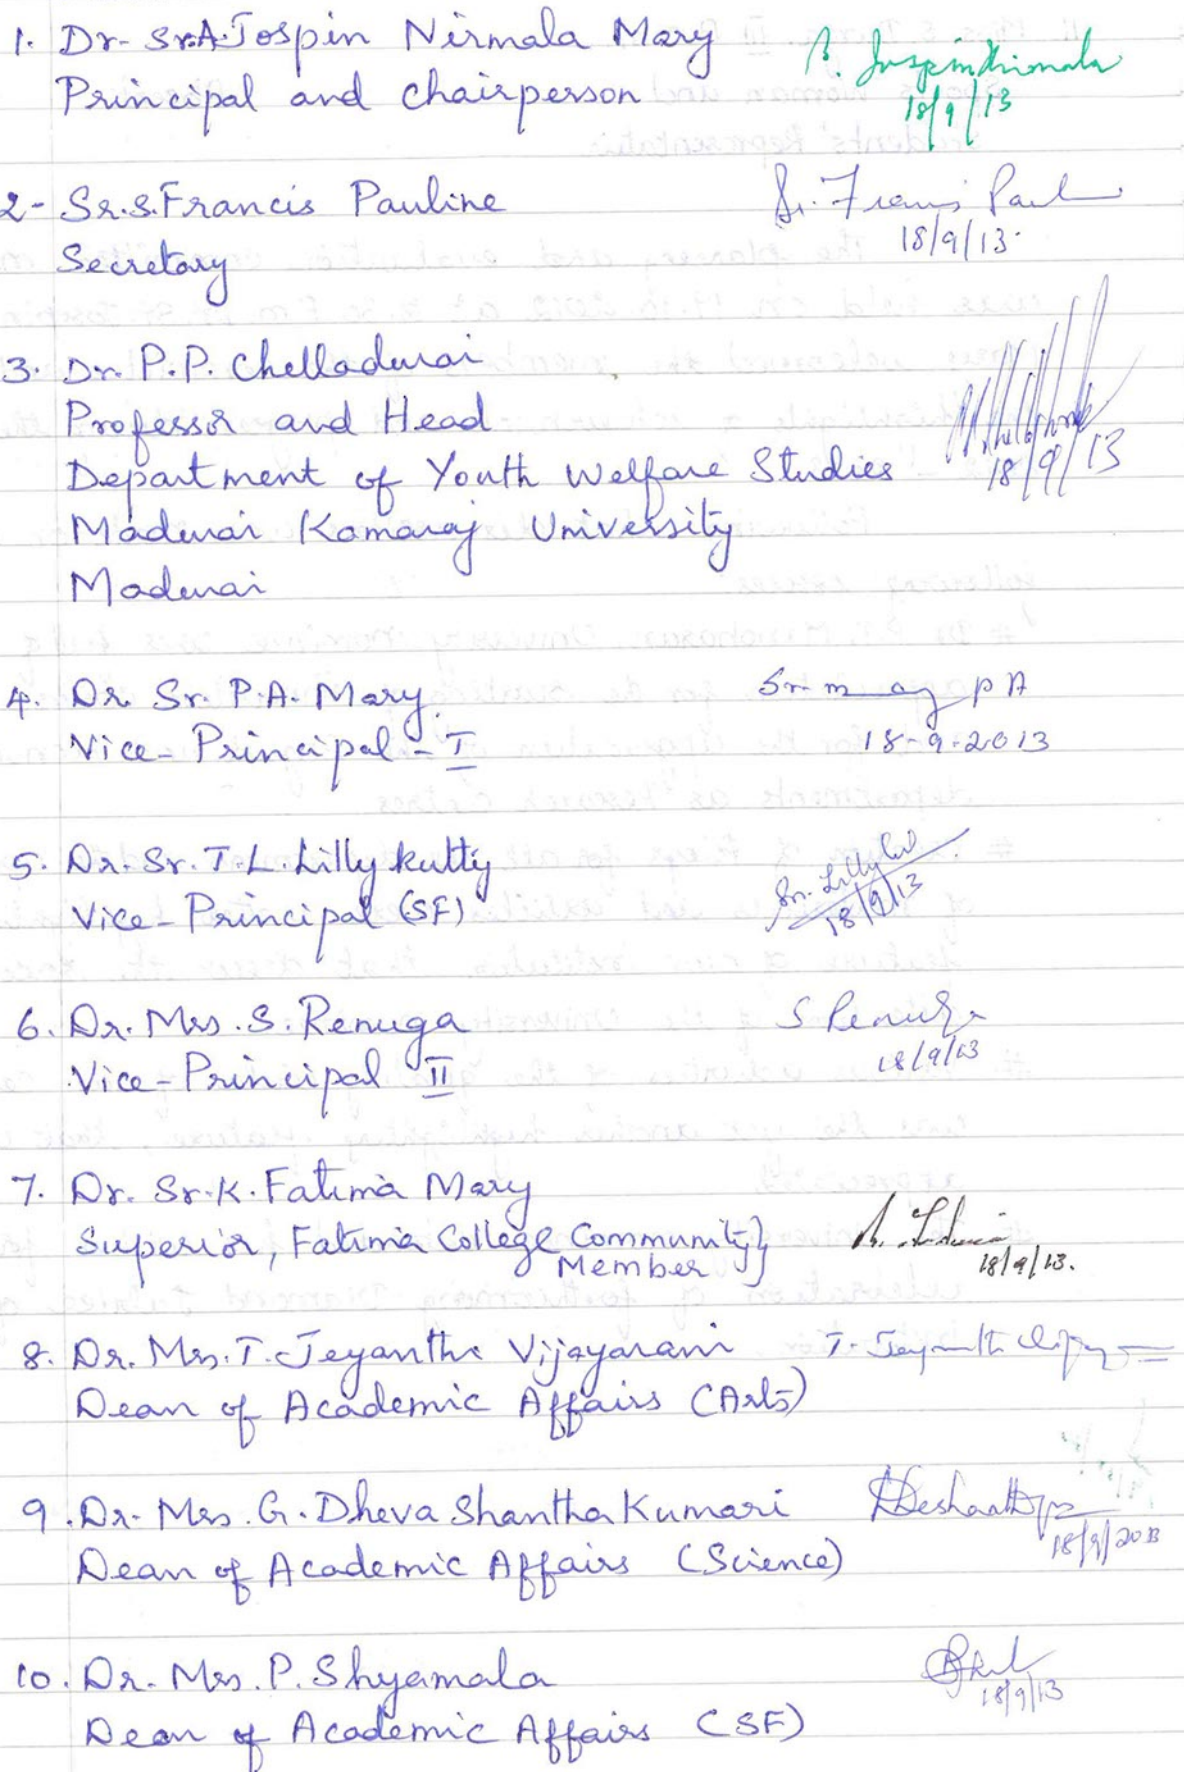 1. Dr. Sr.A.Jospin Nirmala Mary
Principal and chairperson
18/9/13
2- Sr.S.Francis Pauline
Sr. Francis Paul
Secretary
18/9/13.
3. Dr. P.P. Chelladurai
Professor and Head
Department of Youth Welfare Studies
18/9/13
Madurai Kamaraj University
Madurai
4. Dr. Sr. P.A. Mary
Sr. Mary P A
Vice-Principal - I
18-9-2013
5. Dr. Sr. T.L. Lilly kutty
Sr. Lilly
Vice-Principal (SF)
18/9/13
6. Dr. Mrs. S. Renuga
S Renuga
Vice-Principal II
18/9/13
7. Dr. Sr. K. Fatima Mary
Superior, Fatima College Community}
Member
18/9/13.
8. Dr. Mrs. T. Jeyanthi Vijayarani
Dean of Academic Affairs (Arts)
9. Dr. Mrs. G. Dheva Shantha Kumari
Dean of Academic Affairs (Science)
18/9/2013
10. Dr. Mrs. P. Shyamala
Dean of Academic Affairs (SF)
18/9/13